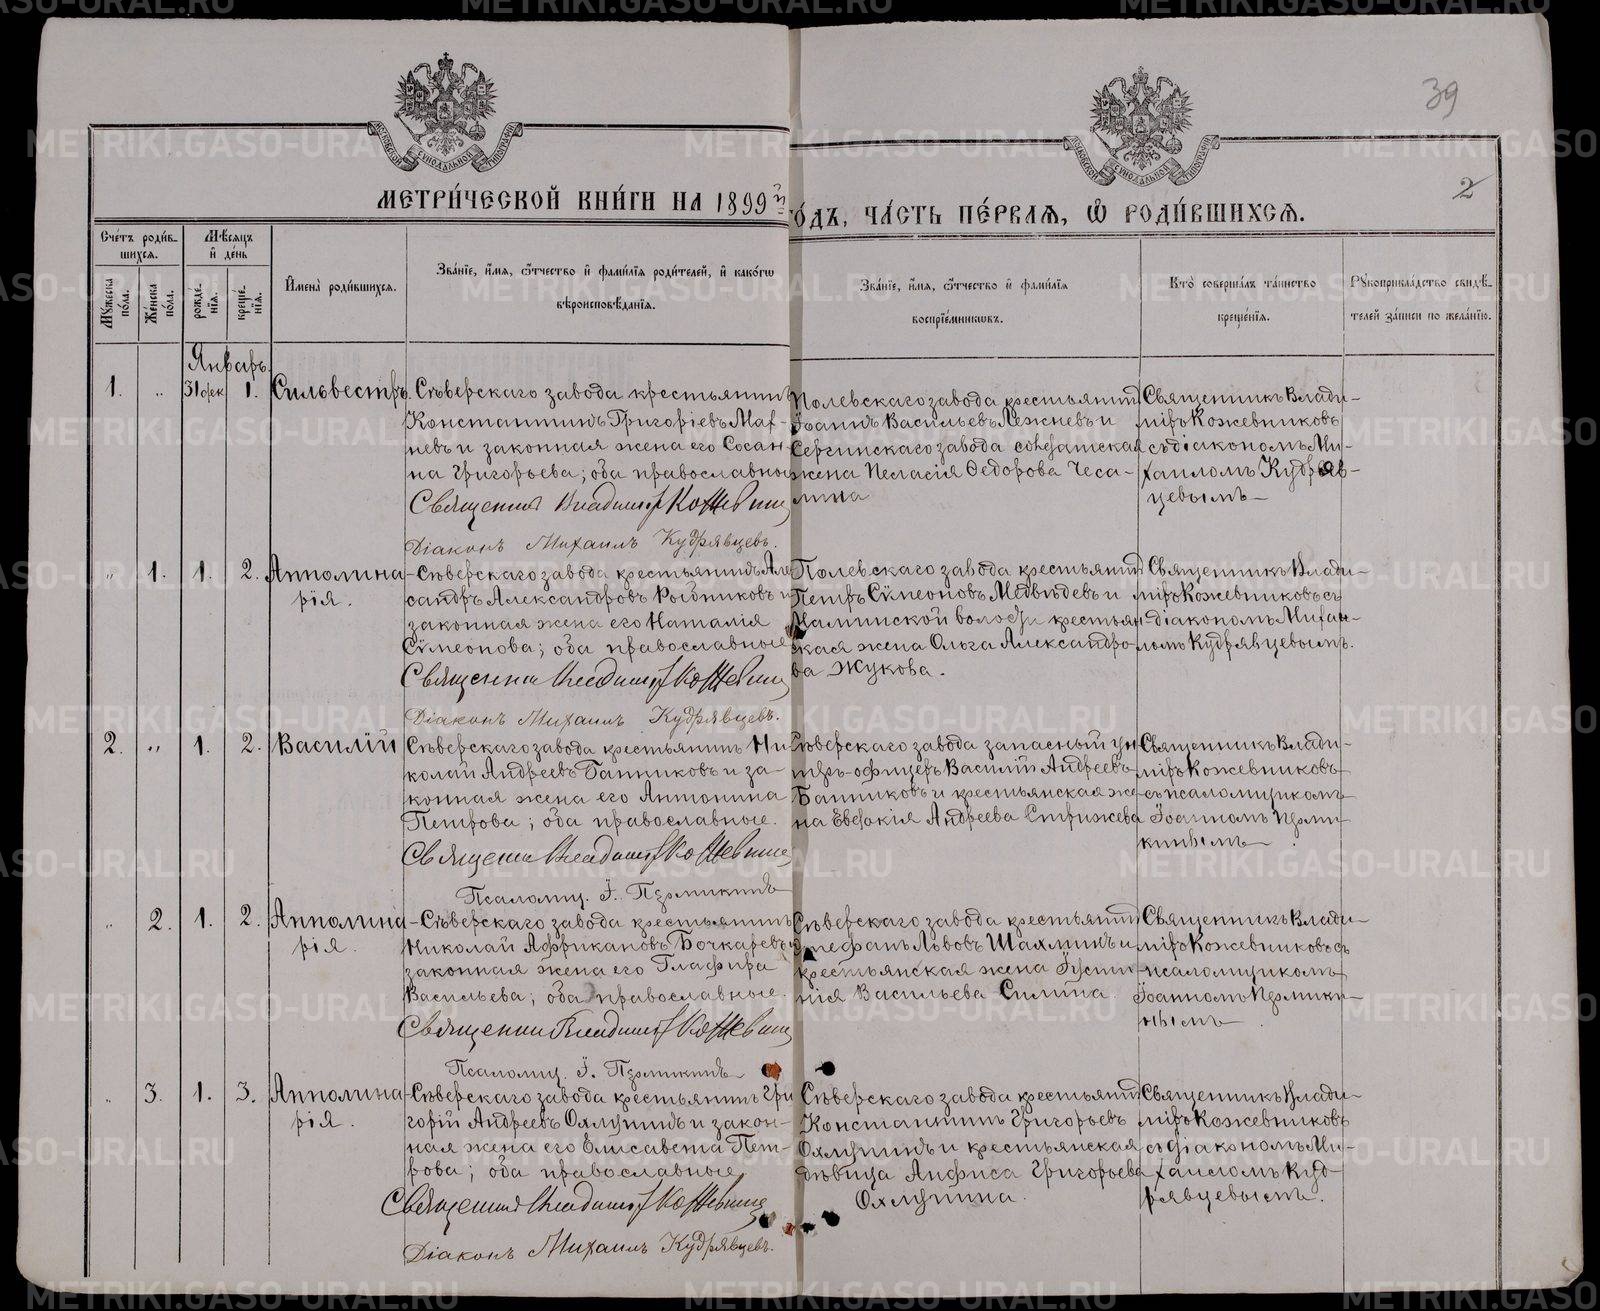 39
2
МОСКОВСКОЙ СѴНОДАЛЬНОЙ ТИПОГРАФІИ
МОСКОВСКОЙ СѴНОДАЛЬНОЙ ТИПОГРАФІИ
МЕТРИ́ЧЕСКОЙ КНИ́ГИ НА 1899й ГО́ДЪ, ЧА́СТЬ ПЕ́РВАЯ, Ѽ РОДИ́ВШИХСЯ.
Сче́тъ роди́в-
шихся.
Мꙋ́жеска по́ла.
Же́нска по́ла.
Мѣ́сяцъ и҆ де́нь
рожде́-
нїя.
креще́-
нїя.
И҆мена̀ роди́вшихся.
Зва́нїе, и҆́мя, ѻ҆́тчество и҆ фами́лїя роди́телей, и҆ како́гѡ
вѣроисповѣ́данїя.
Зва́нїе, и҆́мя, ѻ҆́тчество и҆ фами́лїя
воспрїе́мникѡвъ.
Кто̀ соверша́лъ та́инство
креще́нїя.
Рꙋкоприкла́дство свидѣ́-
телей за́писи по жела́нїю.
Январь.
1. „ 31 дек 1. Сильвестръ.
Сѣверскаго завода крестьянинъ
Константинъ Григорiевъ Мар-
невъ и законная жена его Сосан-
на Григорьева; оба православные
Священник Владимiр Кожевник
Дiаконъ Михаилъ Кудрявцевъ.
Полевскаго завода крестьянин
Iоаннъ Васильевъ Лежневъ и
Сергинскаго завода солдатская
жена Пелагiя Ѳедорова Чеса-
лина
Священникъ Влади-
мiръ Кожевниковъ
съ дiакономъ Ми-
хаиломъ Кудряв-
цевымъ
„ 1. 1. 2. Апполина-
рiя.
Сѣверскаго завода крестьянинъ Але
сандръ Александровъ и
законная жена его Наталiя
Сѵмеонова; оба православные
Священник Владимiр Кожевник
Дiаконъ Михаилъ Кудрявцевъ.
Полевскаго завода крестьянин
Петръ Сѵмеоновъ Медвѣдевъ и
волости крестьян
ская жена Ольга Александро
ва Жукова.
Священникъ Влади-
мiръ Кожевниковъ съ
дiакономъ Михаи-
ломъ Кудрявцевымъ.
2. „ 1. 2. Василiй
Сѣверскаго завода крестьянинъ Ни
колай Андреевъ Банниковъ и за-
конная жена его Антонина
Петрова; оба православные.
Священник Владимiр Кожевник
Псаломщ. I. Пермикинъ
Сѣверскаго завода запасный ун
теръ-офицеръ Василiй Андреевъ
Банниковъ и крестьянская же
на Евдокiя Андреева Стрижева
Священникъ Влади-
мiръ Кожевниковъ
съ псаломщикомъ
Iоанномъ Перми-
кинымъ
„ 2. 1. 2. Апполина-
рiя.
Сѣверскаго завода крестьянинъ
Николай Африкановъ Бочкаревъ и
законная жена его Глафира
Васильева; оба православные.
Священник Владимiр Кожевник
Псаломщ. I. Пермикинъ
Сѣверскаго завода крестьянин
Стефанъ Львовъ Шахминъ и
крестьянская жена Iусти-
нiя Васильева Силина.
Священникъ Влади-
мiръ Кожевниковъ съ
псаломщикомъ
Iоанномъ Пермики-
нымъ
„ 3. 1. 3. Апполина-
рiя.
Сѣверскаго завода крестьянинъ Гри
горiй Андреевъ Охлупинъ и закон-
ная жена его Елисавета Пет-
рова; оба православные
Священник Владимiр Кожевник
Дiаконъ Михаилъ Кудрявцевъ.
Сѣверскаго завода крестьянин
Константинъ Григорьевъ
Охлупинъ и крестьянская
дѣвица Анфиса Григорьева
Охлупина.
Священникъ Влади-
мiръ Кожевниковъ
съ дiакономъ Ми-
хаиломъ Куд-
рявцевымъ.
METRIKI.GASO-URAL.RU